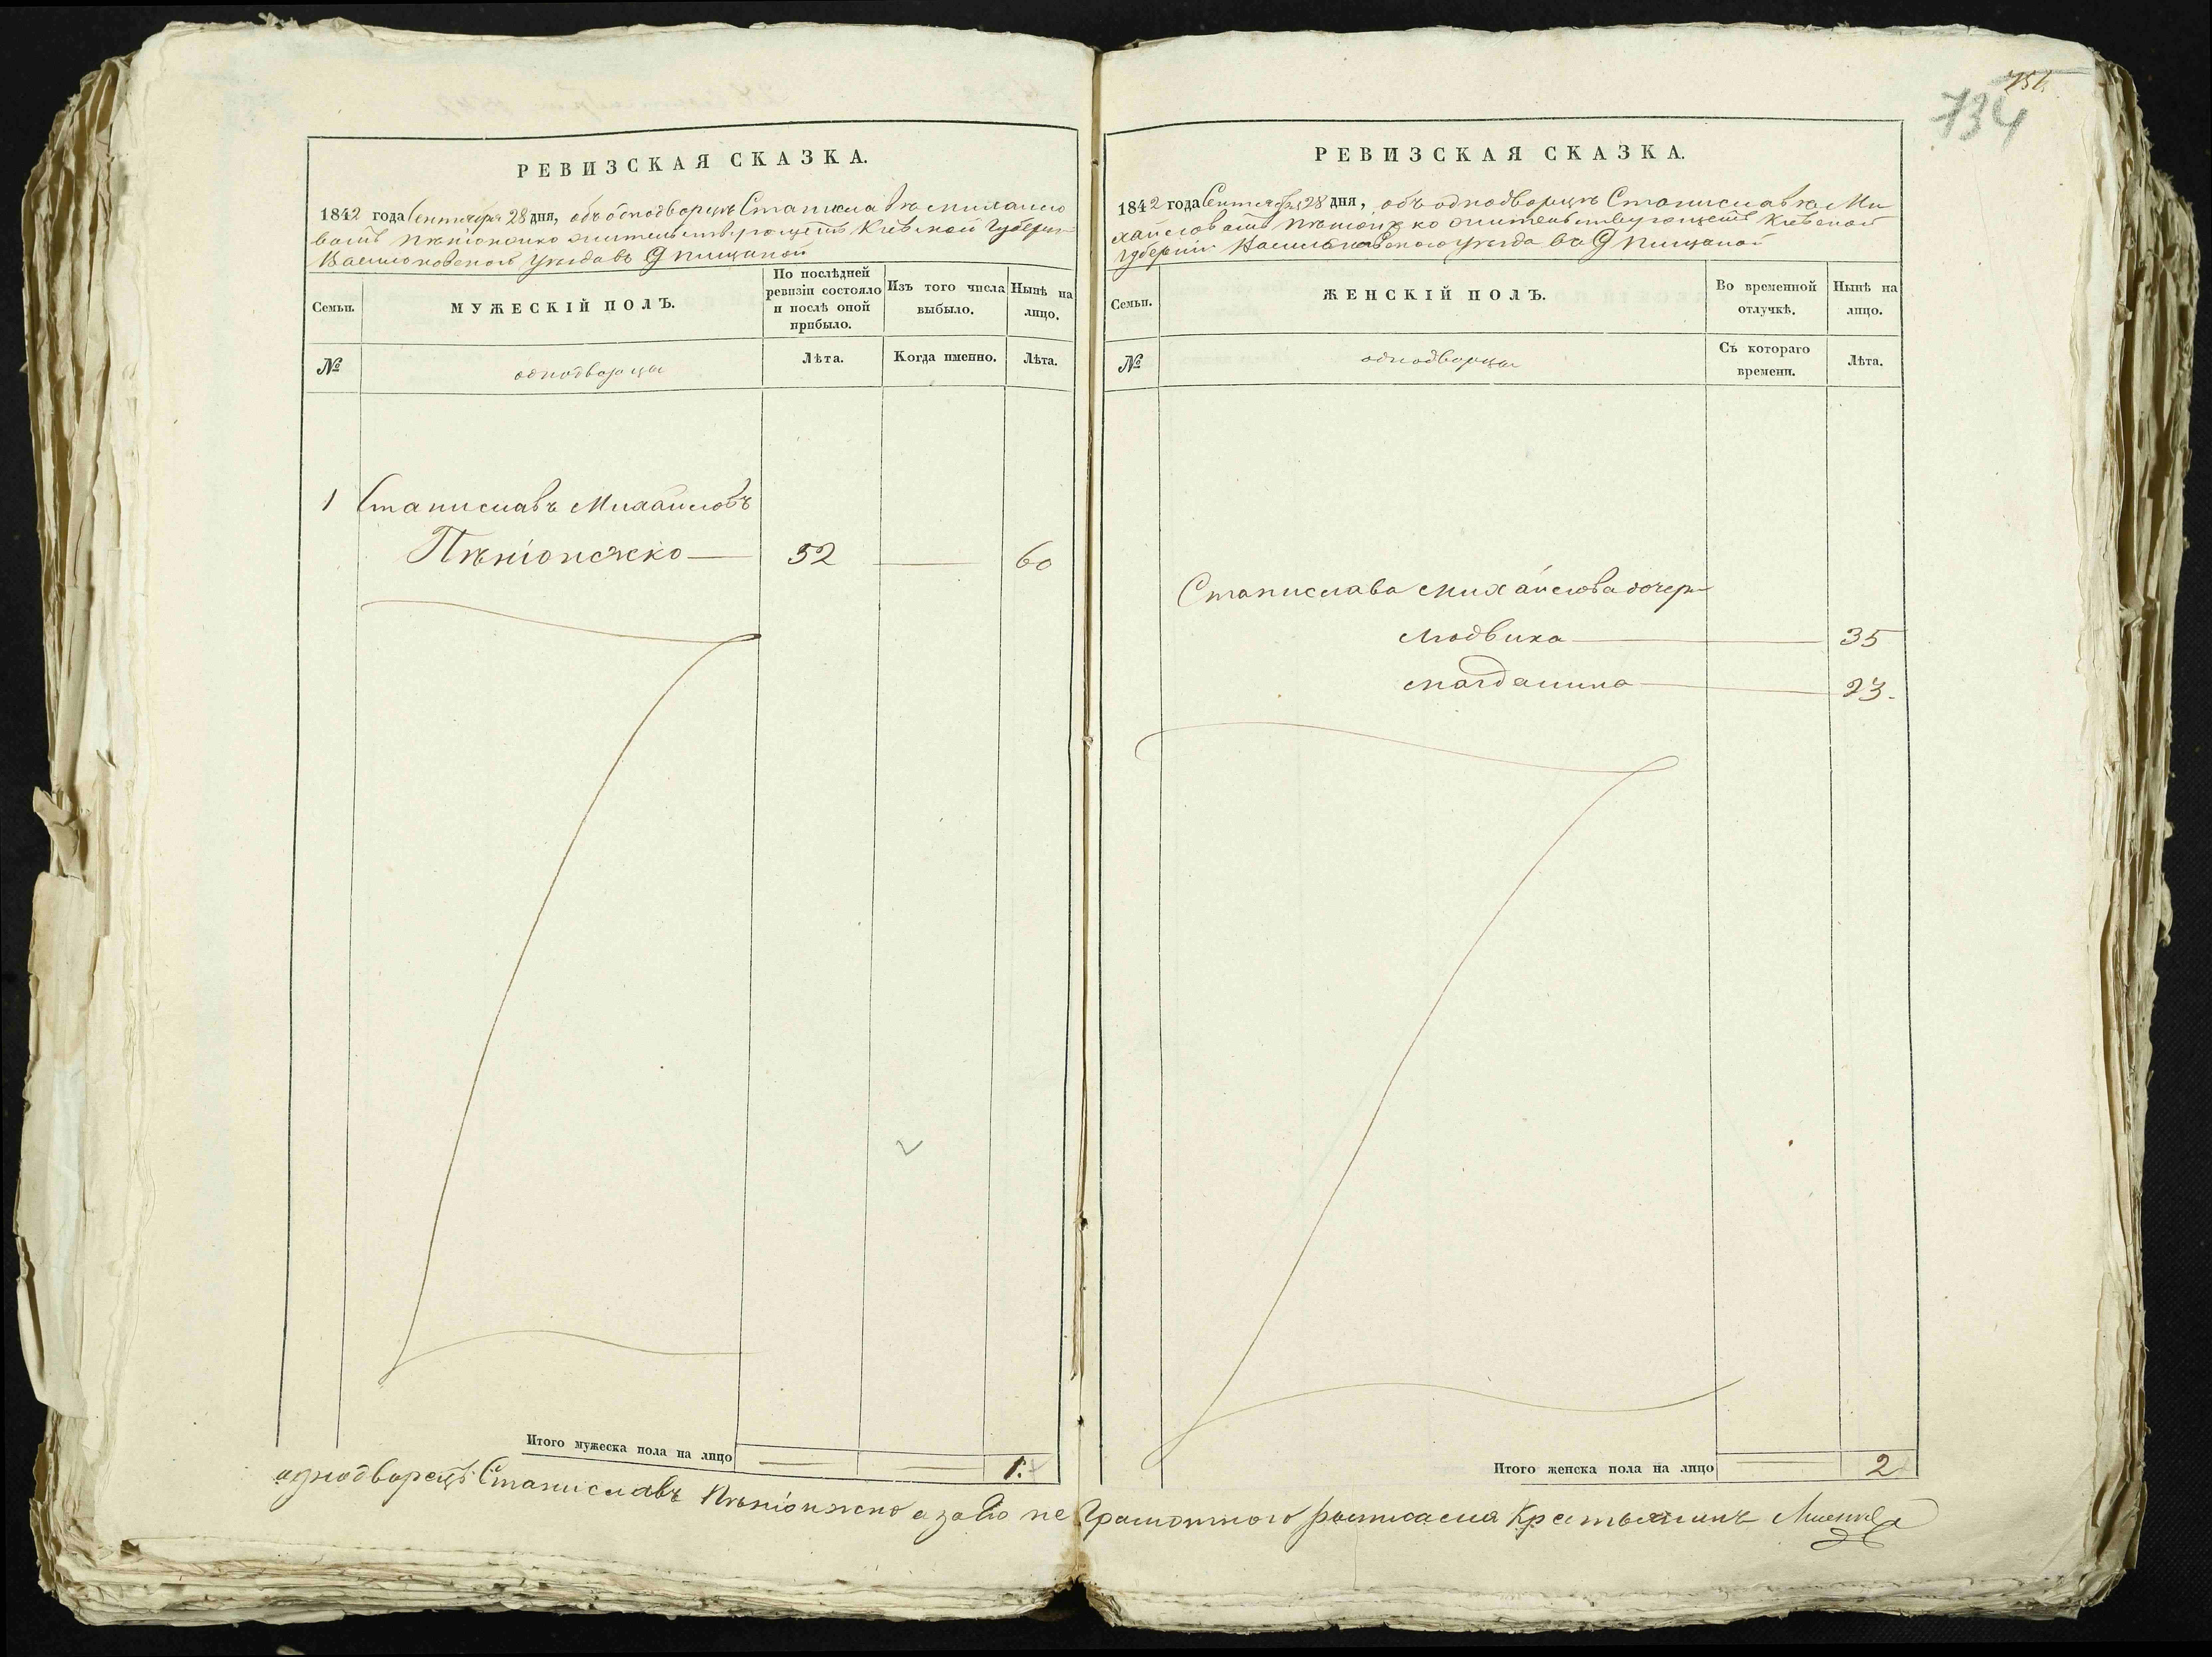 РЕВИЗСКАЯ СКАЗКА.
1842 года Сентября 28 дня, объ однодворцѣ Станиславѣ Михайло
вомъ Пѣніонжко жительствующемъ Кіевской Губерніи
Васильковского уѣзда въ Д Пищаной
Семьи.
МУЖЕСКІЙ ПОЛЪ.
По послѣдней
ревизіи состояло
и послѣ оной
прибыло.
Изъ того числа
выбыло.
Нынѣ на
лицо.
№
однодворцы
Лѣта.
Когда именно.
Лѣта.
1 Станиславъ Михайловъ
Пѣніонжко 52 60
Итого мужеска пола на лицо 1.
734
РЕВИЗСКАЯ СКАЗКА.
1842 года Сентября 28 дня, объ однодворцѣ Станиславѣ Ми
хайловомъ Пѣніонжко жительствующемъ Кіевской
Губерніи Васильковского уѣзда въ Д Пищаной
Семьи.
ЖЕНСКІЙ ПОЛЪ.
Во временной
отлучкѣ.
Нынѣ на
лицо.
№
однодворцы
Съ котораго
времени.
Лѣта.
Станислава Михайлова дочери
Людвика 35
Магдалина 23.
Итого женска пола на лицо 2
однодворецъ Станиславъ Пѣніонжко а за его не Грамотного росписался Крестьянинъ